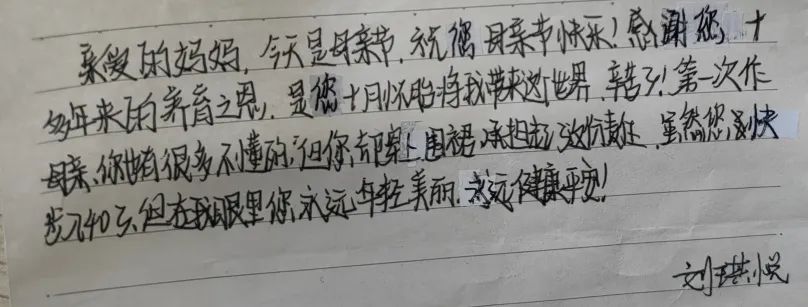 亲爱的妈妈,今天是母亲节,祝您母亲节快乐!感谢您,十
多年来的养育之恩,是您十月怀胎将我带来这个世界,辛苦了!第一次作
母亲,你也有很多不懂的,但你却穿上围裙承担起这份责任,虽然您快
步入40了,但在我眼里你永远年轻美丽.永远健康平安!
刘琪悦